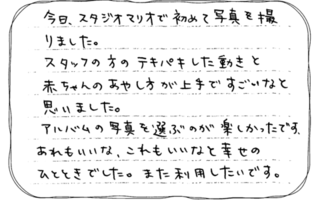 今日、スタジオマリオで初めて写真を撮
りました。
スタッフの方のテキパキした動きと
赤ちゃんのあやし方が上手ですごいなと
思いました。
アルバムの写真を選ぶのが楽しかったです。
あれもいいな、これもいいなと幸せの
ひとときでした。また利用したいです。